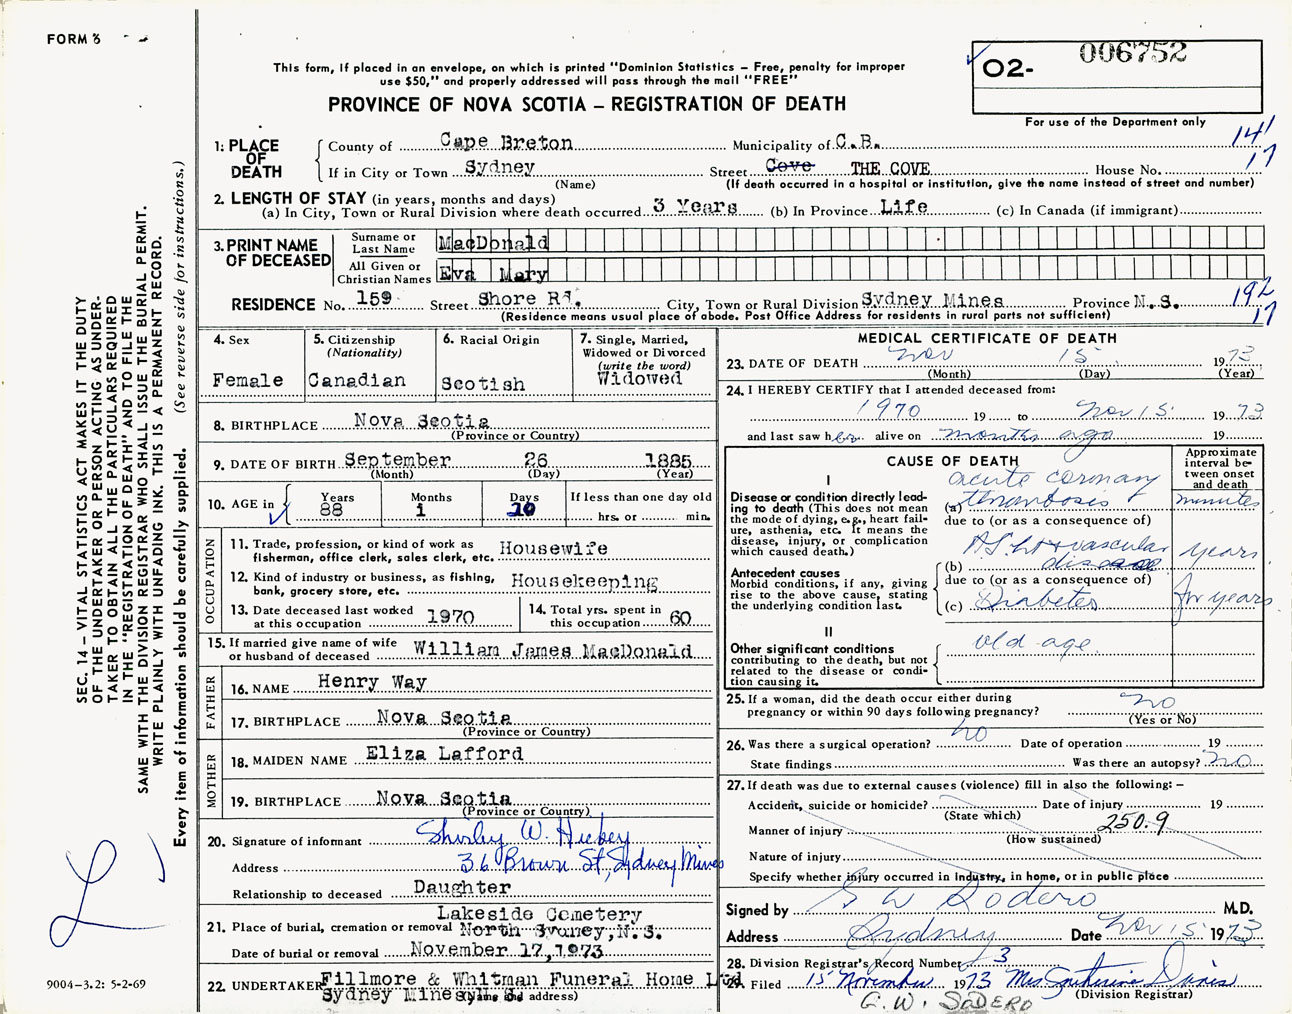 FORM 3
SEC. 14 – VITAL STATISTICS ACT MAKES IT THE DUTY
OF THE UNDERTAKER OR PERSON ACTING AS UNDER-
TAKER TO OBTAIN ALL THE PARTICULARS REQUIRED
IN THE "REGISTRATION OF DEATH" AND TO FILE THE
SAME WITH THE DIVISION REGISTRAR WHO SHALL ISSUE THE BURIAL PERMIT.
WRITE PLAINLY WITH UNFADING INK. THIS IS A PERMANENT RECORD.
Every item of information should be carefully supplied. (See reverse side for instructions.)
9004-3.2: 5-2-69
This form, if placed in an envelope, on which is printed "Dominion Statistics – Free, penalty for improper
use $50," and properly addressed will pass through the mail "FREE"
PROVINCE OF NOVA SCOTIA – REGISTRATION OF DEATH
02- 006752
For use of the Department only
1: PLACE OF DEATH
County of Cape Breton Municipality of C.B. 141
If in City or Town Sydney Street Cove THE COVE House No. 17
(Name) (If death occurred in a hospital or institution, give the name instead of street and number)
2. LENGTH OF STAY (in years, months and days)
(a) In City, Town or Rural Division where death occurred 3 Years (b) In Province Life (c) In Canada (if immigrant)
3. PRINT NAME OF DECEASED
Surname or Last Name MacDonald
All Given or Christian Names Eva Mary
RESIDENCE No. 159 Street Shore Rd. City, Town or Rural Division Sydney Mines Province N.S. 192
(Residence means usual place of abode. Post Office Address for residents in rural parts not sufficient) 17
4. Sex Female
5. Citizenship (Nationality) Canadian
6. Racial Origin Scotish
7. Single, Married, Widowed or Divorced (write the word) Widowed
8. BIRTHPLACE Nova Scotia
(Province or Country)
9. DATE OF BIRTH September 26 1885
(Month) (Day) (Year)
10. AGE in Years 88 Months 1 Days If less than one day old hrs. or min.
OCCUPATION
11. Trade, profession, or kind of work as fisherman, office clerk, sales clerk, etc. Housewife
12. Kind of industry or business, as fishing, bank, grocery store, etc. Housekeeping
13. Date deceased last worked at this occupation 1970
14. Total yrs. spent in this occupation 60
15. If married give name of wife or husband of deceased William James MacDonald
FATHER
16. NAME Henry Way
17. BIRTHPLACE Nova Scotia
(Province or Country)
MOTHER
18. MAIDEN NAME Eliza Lafford
19. BIRTHPLACE Nova Scotia
(Province or Country)
20. Signature of informant Shirley W. Hickey
Address 36 Brown St, Sydney Mines
Relationship to deceased Daughter
21. Place of burial, cremation or removal Lakeside Cemetery North Sydney, N.S.
Date of burial or removal November 17, 1973
22. UNDERTAKER Fillmore & Whitman Funeral Home Ltd
Sydney Mines, N.S.
(Name and address)
MEDICAL CERTIFICATE OF DEATH
23. DATE OF DEATH Nov 15 1973
(Month) (Day) (Year)
24. I HEREBY CERTIFY that I attended deceased from:
1970 19 to Nov 15 1973
and last saw her alive on months ago 19
CAUSE OF DEATH
Approximate interval between onset and death
I
Disease or condition directly leading to death (This does not mean the mode of dying, e.g., heart failure, asthenia, etc. It means the disease, injury, or complication which caused death.)
(a) acute coronary thrombosis minutes
due to (or as a consequence of)
Antecedent causes
Morbid conditions, if any, giving rise to the above cause, stating the underlying condition last.
(b) vascular disease years
due to (or as a consequence of)
(c) Diabetes for years
II
Other significant conditions contributing to the death, but not related to the disease or condition causing it.
old age
25. If a woman, did the death occur either during pregnancy or within 90 days following pregnancy? no
(Yes or No)
26. Was there a surgical operation? no Date of operation 19
State findings Was there an autopsy? no
27. If death was due to external causes (violence) fill in also the following: –
Accident, suicide or homicide? Date of injury 19
(State which)
Manner of injury 250.9
(How sustained)
Nature of injury
Specify whether injury occurred in industry, in home, or in public place
Signed by G W Sodero M.D.
Address Sydney Date Nov 15 1973
28. Division Registrar's Record Number 3
29. Filed 15 November 1973 Mrs Davis
(Division Registrar)
G. W. SODERO